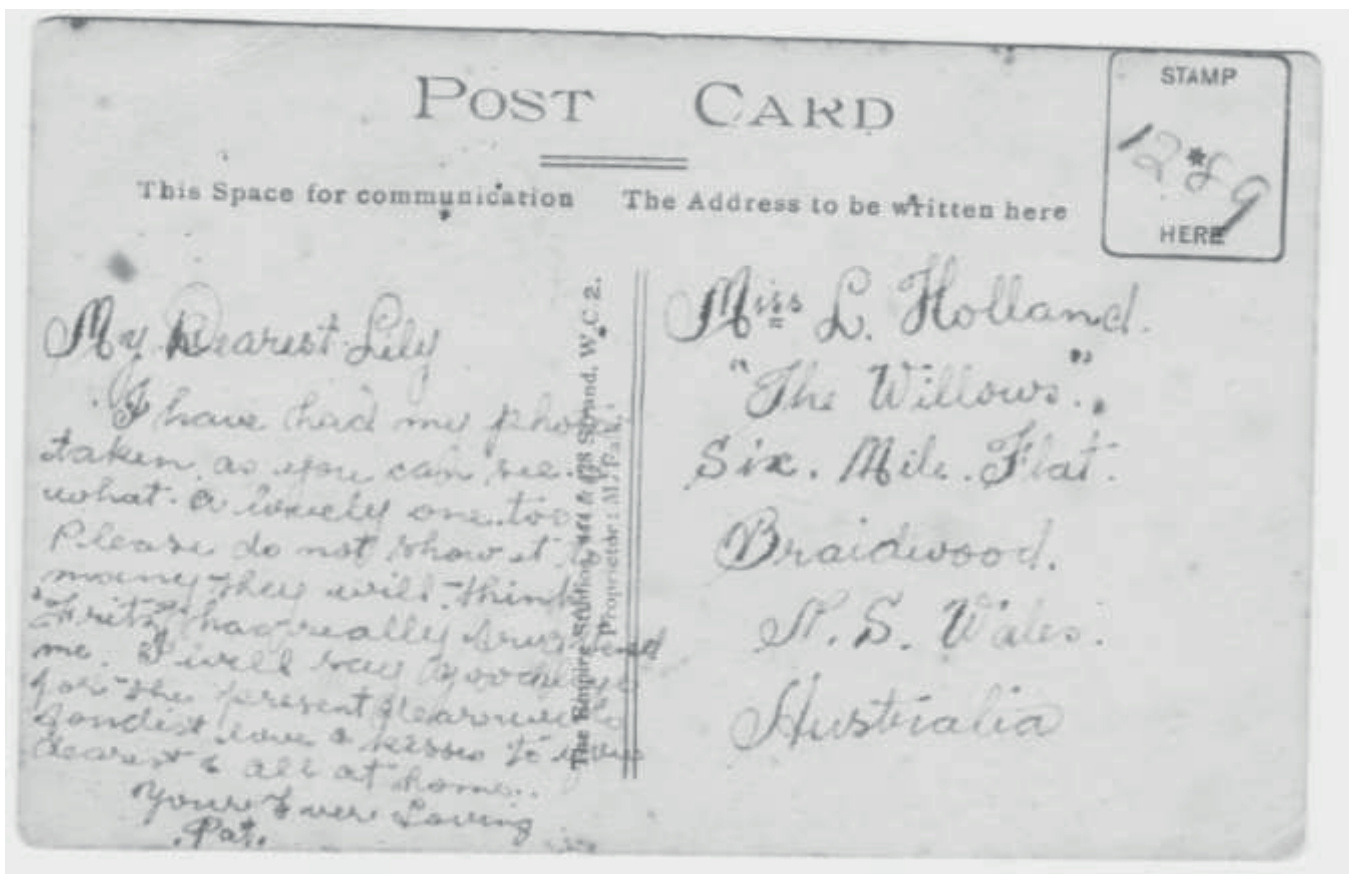 POST CARD
This Space for communication
The Address to be written here
STAMP
HERE
My Dearest Lily
I have had my photo
taken as you can see.
what a lovely one too
Please do not show it to
many they will think
"Fritz" has really
me. I will say goodbye
for the present dearest
fondest love & kisses to you
dearest & all at home.
Yours Ever Loving
Pat.
The Empire Studios, & Strand, W.C.2.
Proprietor:
Miss L. Holland.
"The Willows".
Six. Mile. Flat.
Braidwood.
N. S. Wales.
Australia